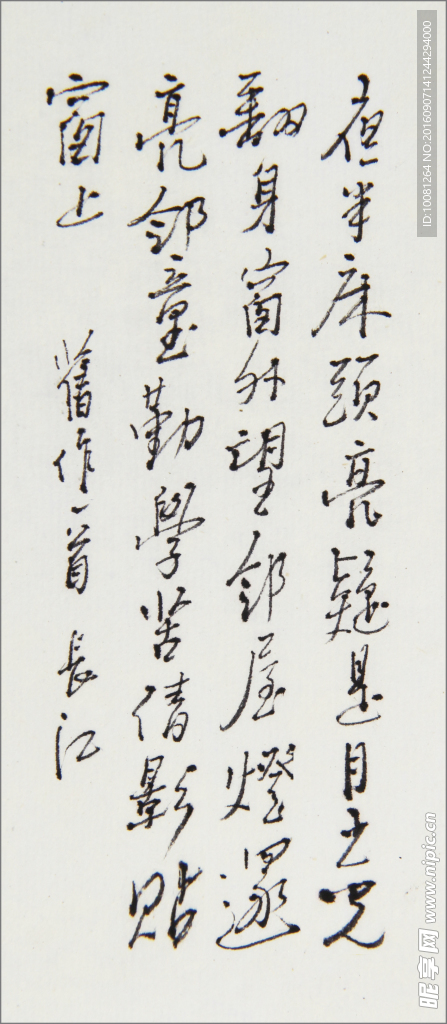 夜半床頭亮疑是月光晃
翻身窗外望鄰屋燈還
亮鄰童勤學苦倩影貼
窗上
舊作一首 長江
ID:10081264 NO:20160907141244294000
昵享网 www.nipic.cn